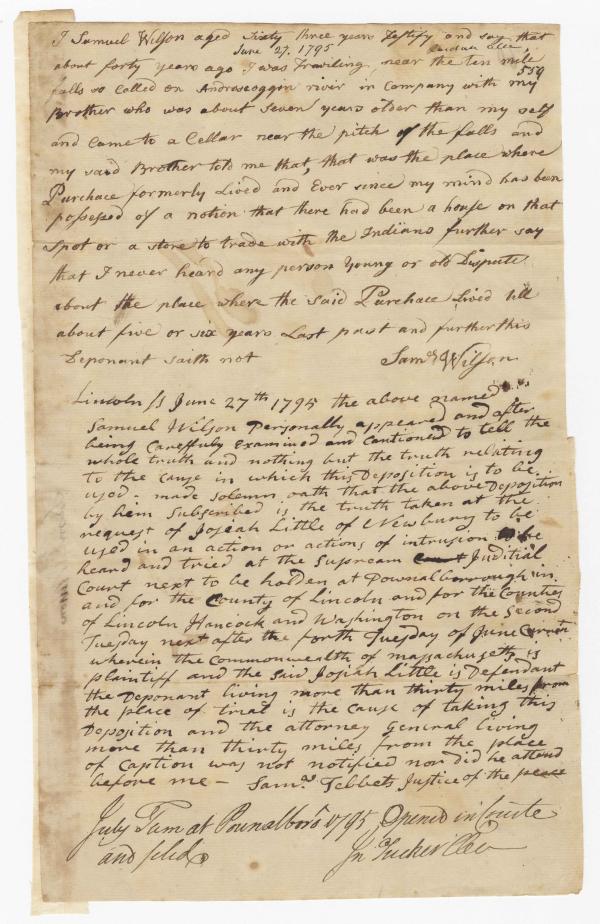 I Samuel Wilson aged Sixty three years Testify and say that
June 27. 1795
about forty years ago I was Traveling near the ten mile
559
falls so Called on Androscoggin river in Company with my
Brother who was about Seven years older than my self
and Came to a Cellar near the pitch of the falls and
my said Brother told me that, that was the place where
Purchace formerly Lived and Ever since my mind has been
possessed of a notion that there had been a house on that
spot or a store to trade with the Indians further say
that I never heard any person Young or old Dispute
about the place where the said Purchace Lived till
about five or six years Last past and further this
Deponant saith not Saml Wilson
Lincoln Ss June 27th 1795 the above named
Samuel Wilson Personally appeared and after
being Careffuly Examined and Cautioned to tell the
whole truth and nothing but the truth relating
to the Cause in which this Deposition is to be
used - made Solemn oath that the above Deposition
by him Subscribed is the truth taken at the
request of Josiah Little of Newbury to be
used in an action or actions of intrusion to be
heard and tried at the Supream Juditial
Court next to be holden at Pownalborrough in
and for the County of Lincoln and for the Counties
of Lincoln Hancock and Washington on the Second
Tuesday next after the forth Tuesday of June
wherein the Commonwealth of massachusetts is
plaintiff and the said Josiah Little is Defendant
the Deponant living more than thirty miles from
the place of trial is the Cause of taking this
Deposition and the attorney General living
more than thirty miles from the place
of Caption was not notified nor did he attend
before me - Saml Tebbets Justice of the peace
July Term at Pownalboro' 1795 Opened in Courte
and filed Jn Tucker Cler